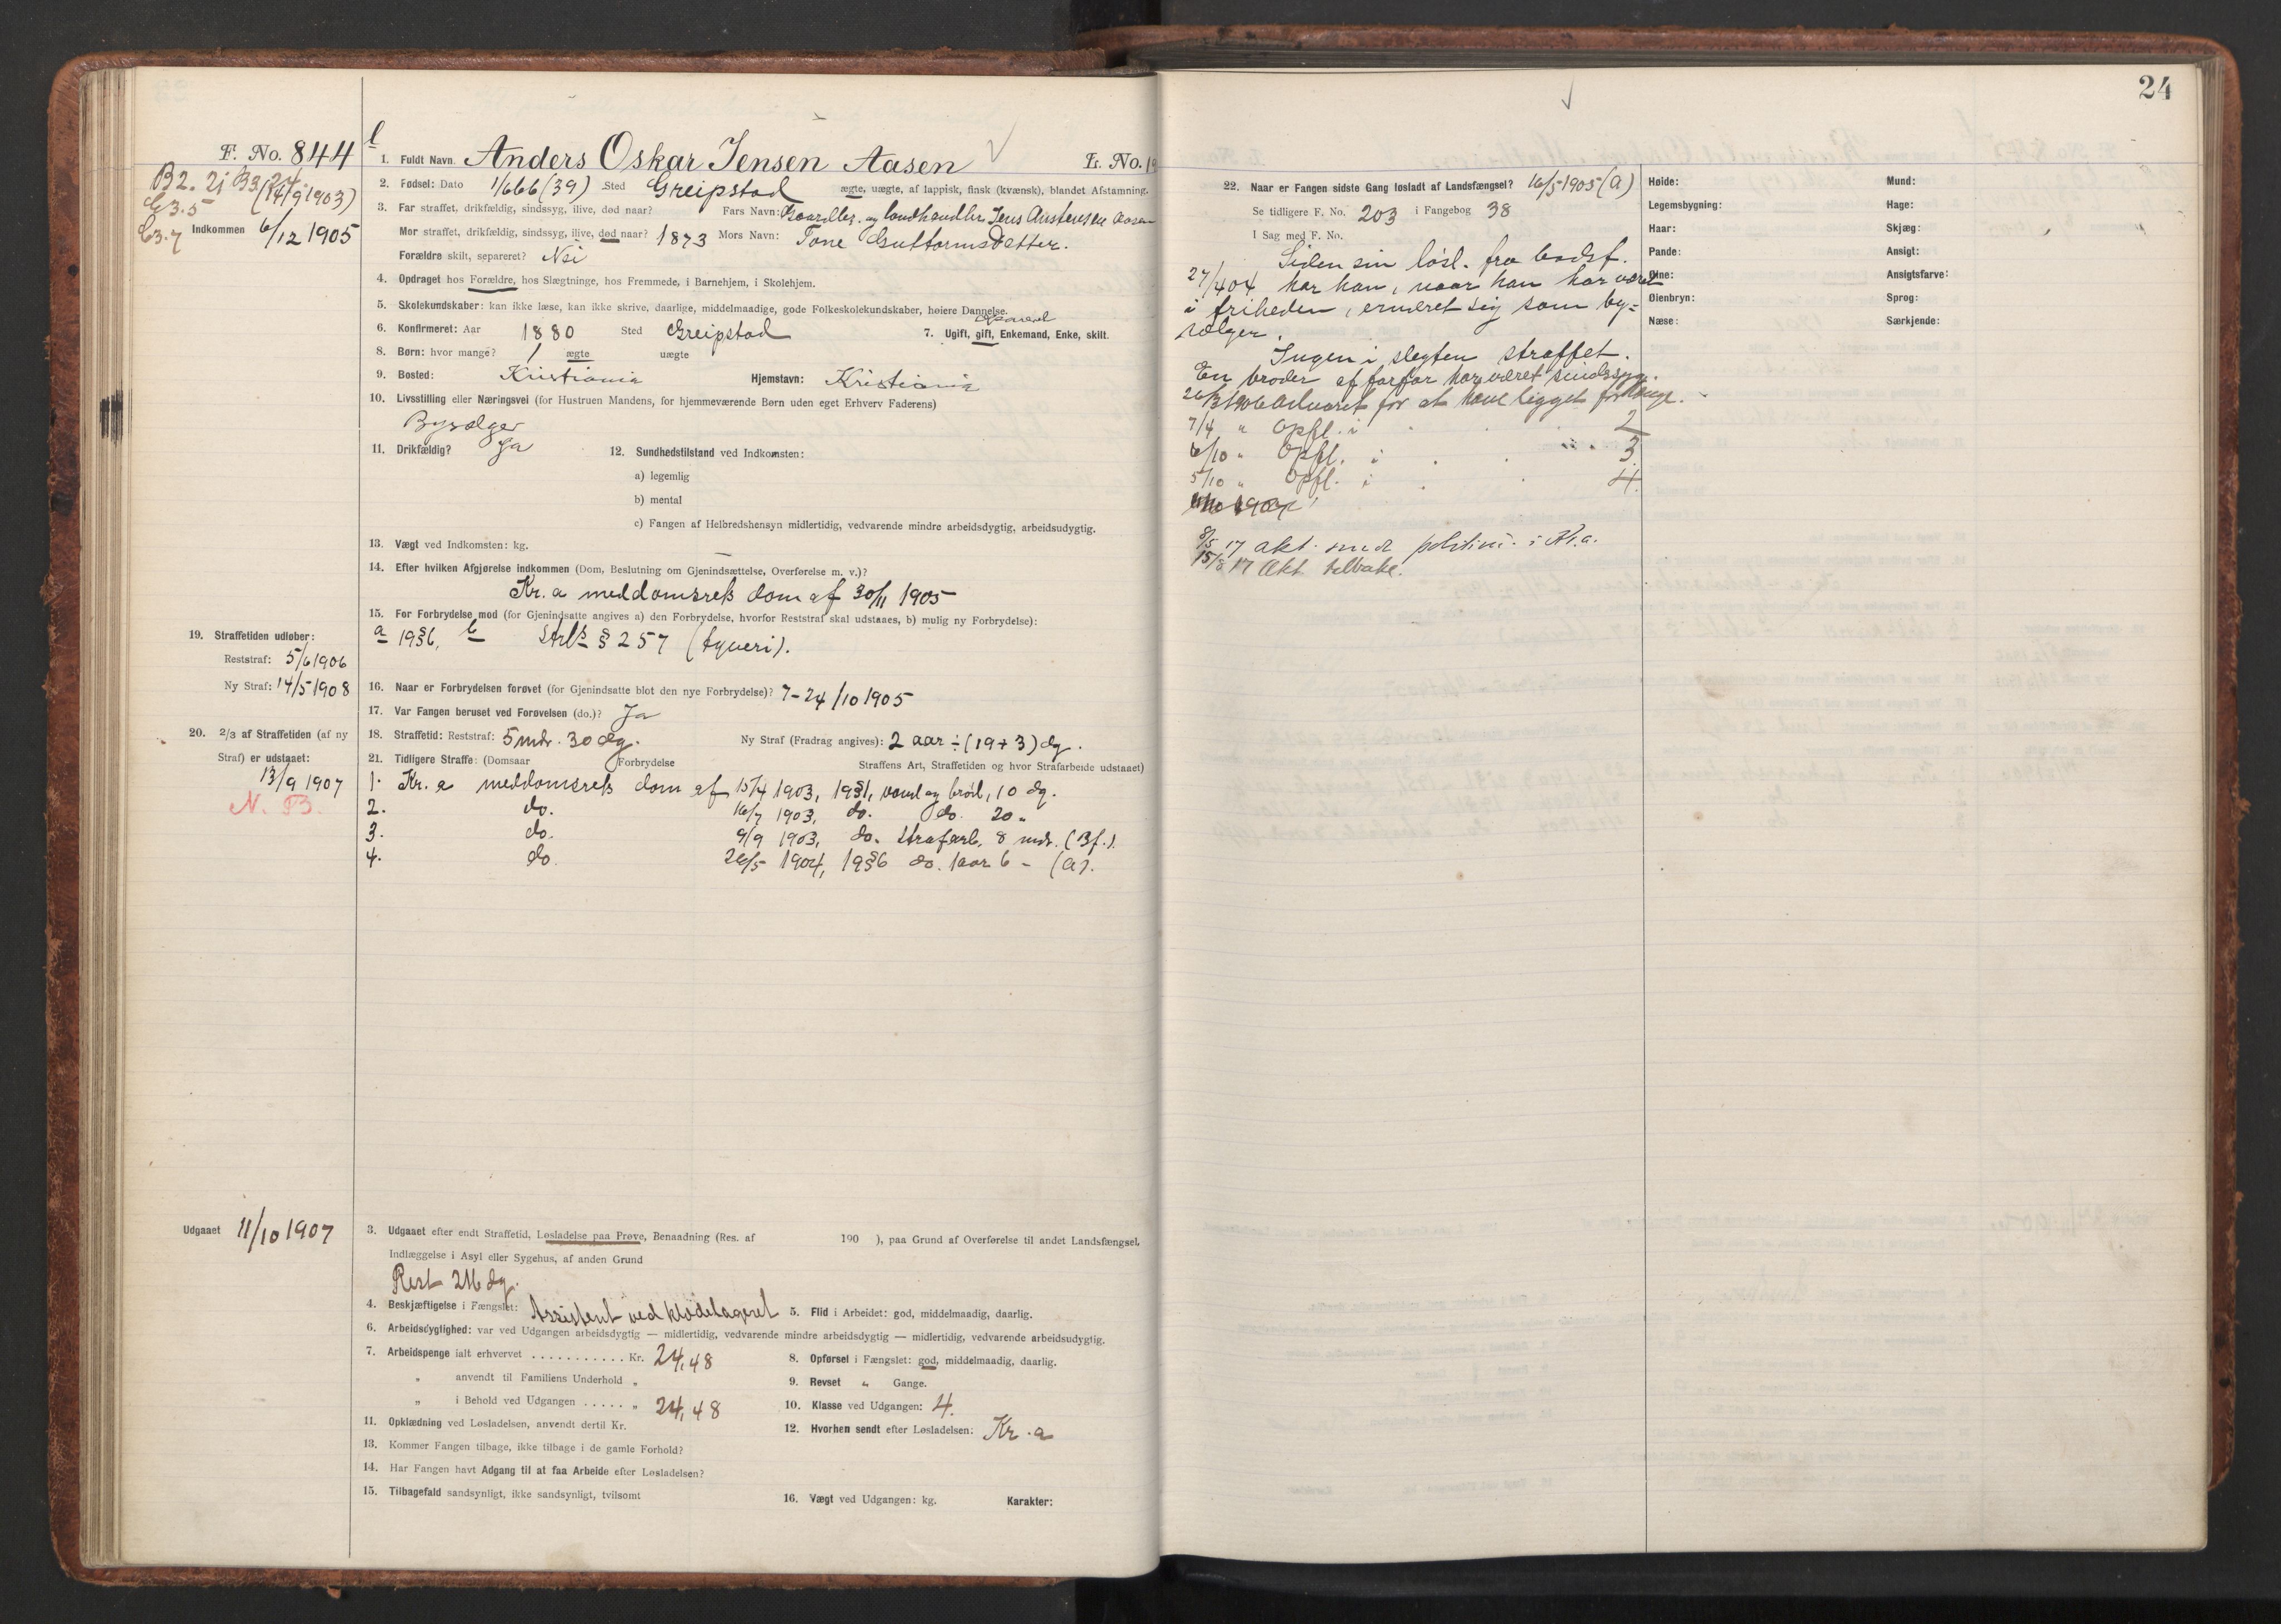 24
F. No. 844
B2. 21 B3.
(14/9 1903)
C3.5
C3.7
Indkommen 6/12 1905
1. Fuldt Navn. Anders Oskar Jensen Aasen L. No.
2. Fødsel: Dato 1/6 66 (39) Sted Greipstad ægte, uægte, af lappisk, finsk (kvænsk), blandet Afstamning.
3. Far straffet, drikfældig, sindssyg, ilive, død naar? Fars Navn: Gaardbr. og landhandler Jens Austensen Aasen
Mor straffet, drikfældig, sindssyg, ilive, død naar? 1873 Mors Navn: Tone Guttormsdatter.
Forældre skilt, separeret? Nei
4. Opdraget hos Forældre, hos Slægtninge, hos Fremmede, i Barnehjem, i Skolehjem.
5. Skolekundskaber: kan ikke læse, kan ikke skrive, daarlige, middelmaadige, gode Folkeskolekundskaber, høiere Dannelse.
6. Konfirmeret: Aar 1880 Sted Greipstad 7. Ugift, gift, Enkemand, Enke, skilt.
8. Børn: hvor mange? 1 ægte uægte
9. Bosted: Kristiania Hjemstavn: Kristiania
10. Livsstilling eller Næringsvei (for Hustruen Mandens, for hjemmeværende Børn uden eget Erhverv Faderens)
Bysælger
11. Drikfældig? Ja 12. Sundhedstilstand ved Indkomsten:
a) legemlig
b) mental
c) Fangen af Helbredshensyn midlertidig, vedvarende mindre arbeidsdygtig, arbeidsudygtig.
13. Vægt ved Indkomsten: kg.
14. Efter hvilken Afgjørelse indkommen (Dom, Beslutning om Gjenindsættelse, Overførelse m. v.)?
Kr. a meddomsrets dom af 30/11 1905
15. For Forbrydelse mod (for Gjenindsatte angives a) den Forbrydelse, hvorfor Reststraf skal udstaaes, b) mulig ny Forbrydelse):
a 19§6, b Strl § 257 (tyveri).
16. Naar er Forbrydelsen forøvet (for Gjenindsatte blot den nye Forbrydelse)? 7-24/10 1905
17. Var Fangen beruset ved Forøvelsen (do.)? Ja
18. Straffetid: Reststraf: 5 mdr. 30 dg. Ny Straf (Fradrag angives): 2 aar ÷ (19+3) dg.
19. Straffetiden udløber:
Reststraf: 5/6 1906
Ny Straf: 14/5 1908
20. 2/3 af Straffetiden (af ny
Straf) er udstaaet:
13/9 1907
N. B.
21. Tidligere Straffe: (Domsaar Forbrydelse Straffens Art, Straffetiden og hvor Strafarbeide udstaaet)
1. Kr. a meddomsrets dom af 15/4 1903, 19§1, vand og brød, 10 dg.
2. do. 16/7 1903, do. do. 20 "
3. do. 9/9 1903, do. strafarb. 8 mdr. (Bf.).
4. do. 26/5 1904, 19§6 do. 1 aar 6 - (A).
Udgaaet 11/10 1907
3. Udgaaet efter endt Straffetid, Løsladelse paa Prøve, Benaadning (Res. af 190 ), paa Grund af Overførelse til andet Landsfængsel,
Indlæggelse i Asyl eller Sygehus, af anden Grund
Rest 216 dg.
4. Beskjæftigelse i Fængslet: Assistent ved klædelageret 5. Flid i Arbeidet: god, middelmaadig, daarlig.
6. Arbeidsdygtighed: var ved Udgangen arbeidsdygtig — midlertidig, vedvarende mindre arbeidsdygtig — midlertidig, vedvarende arbeidsudygtig.
7. Arbeidspenge ialt erhvervet . . . . . . . . . . . Kr. 24,48 8. Opførsel i Fængslet: god, middelmaadig, daarlig.
" anvendt til Familiens Underhold " 9. Revset " Gange.
" i Behold ved Udgangen . . . . . " 24,48 10. Klasse ved Udgangen: 4.
11. Opklædning ved Løsladelsen, anvendt dertil Kr. 12. Hvorhen sendt efter Løsladelsen: Kr. a
13. Kommer Fangen tilbage, ikke tilbage i de gamle Forhold?
14. Har Fangen havt Adgang til at faa Arbeide efter Løsladelsen?
15. Tilbagefald sandsynligt, ikke sandsynligt, tvilsomt 16. Vægt ved Udgangen: kg. Karakter:
22. Naar er Fangen sidste Gang løsladt af Landsfængsel? 16/5 1905 (A)
Se tidligere F. No. 203 i Fangebog 38
I Sag med F. No.
Siden sin løsl. fra bodsf.
27/4 04 har han, naar han har været
i friheden, ernæret sig som by-
sælger.
Ingen i slegten straffet.
En broder af farfar har været sindssyg.
26/3 1906 Advaret for at have ligget for længe.
7/4 " Opfl. i 2
6/10 " Opfl. i 3
5/10 " Opfl. i 4.
8/5 17 akt. med politiet i Kr.a.
15/8 17 Akt tilbake.
Høide:
Legemsbygning:
Haar:
Pande:
Øine:
Øienbryn:
Næse:
Mund:
Hage:
Skjæg:
Ansigt:
Ansigtsfarve:
Sprog:
Særkjende: